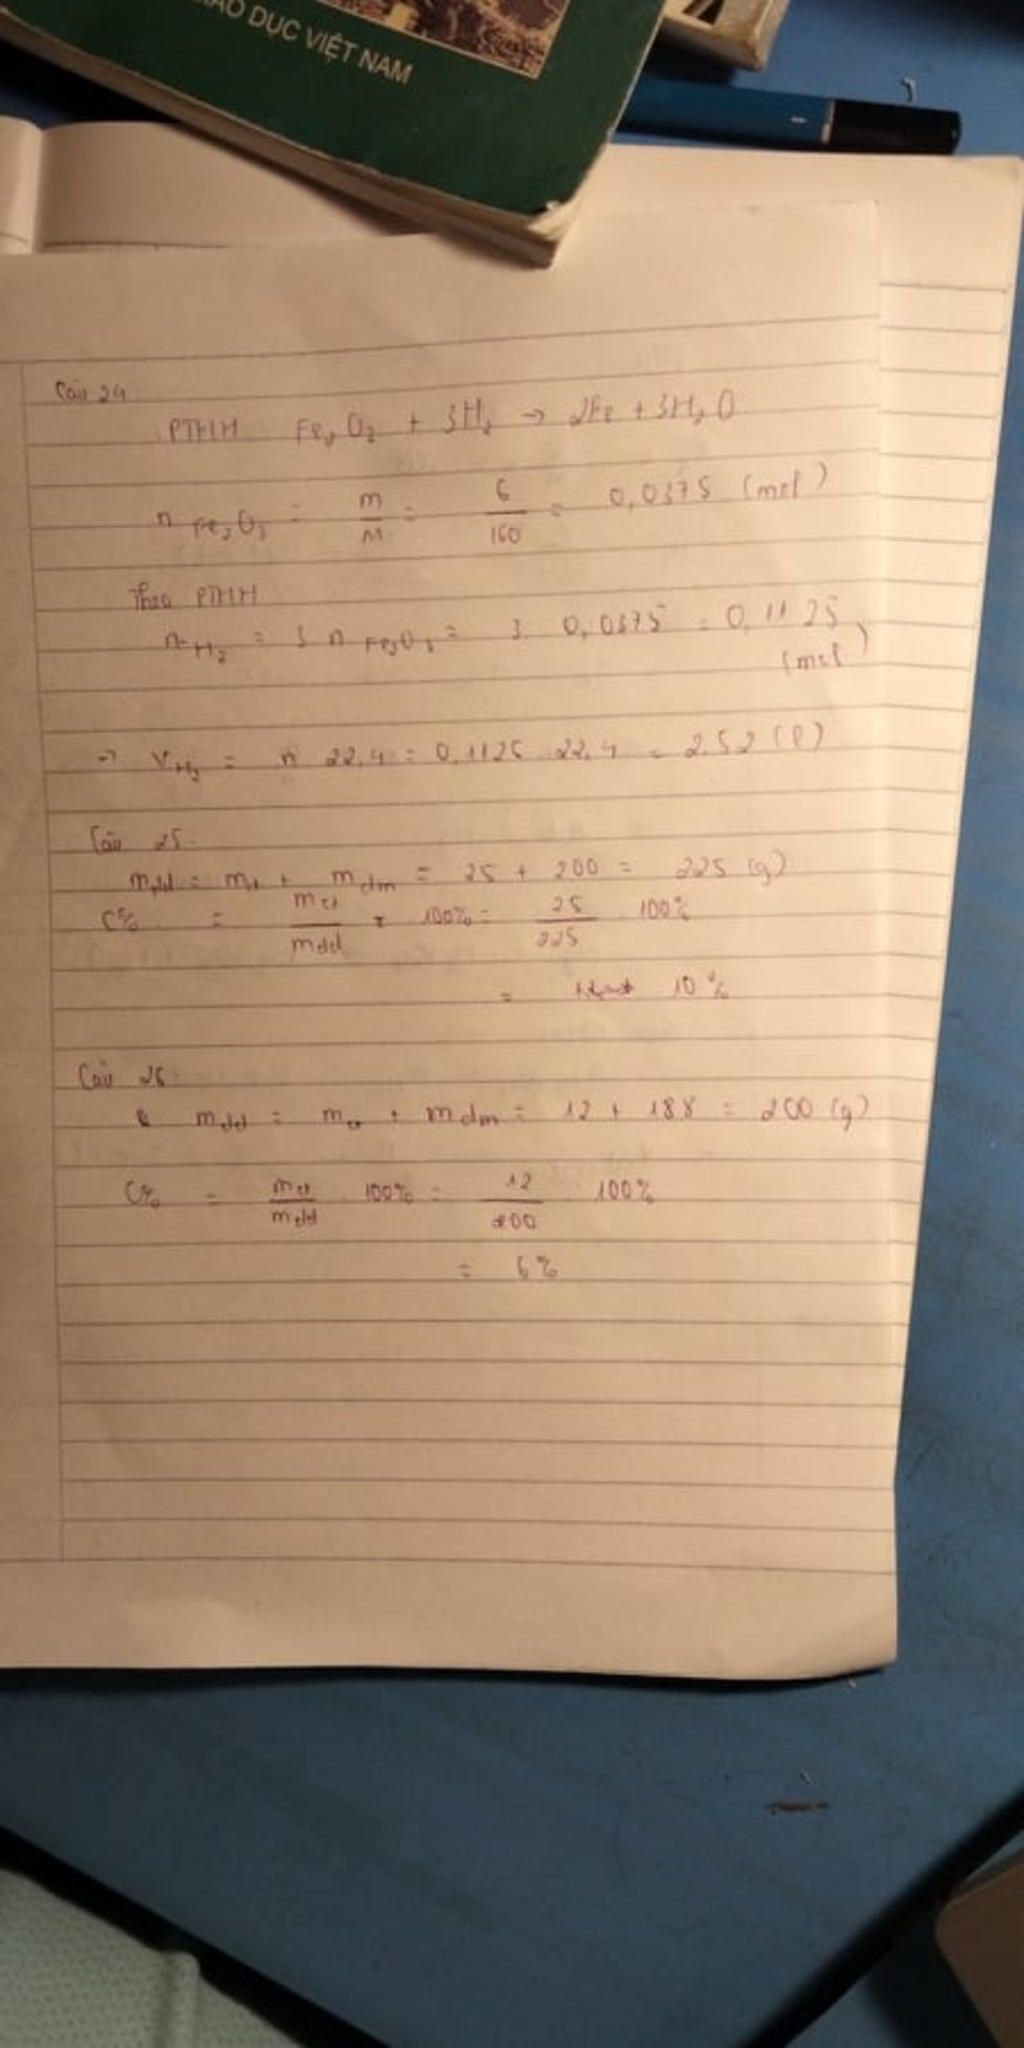 GIÁO DỤC VIỆT NAM
Câu 24
PTHH Fe₂O₃ + 3H₂ → 2Fe + 3H₂O
n Fe₂O₃ = m/M = 6/160 = 0,0375 (mol)
Theo PTHH
n H₂ = 3 n Fe₂O₃ = 3. 0,0375 = 0,1125
(mol)
→ V H₂ = n 22,4 = 0,1125 22,4 = 2,52 (l)
Câu 25
mdd = mct + mdm = 25 + 200 = 225 (g)
C% = mct/mdd x 100% = 25/225 100%
= 10 %
Câu 26
mdd = mct + mdm = 12 + 188 = 200 (g)
C% = mct/mdd 100% = 12/200 100%
= 6%